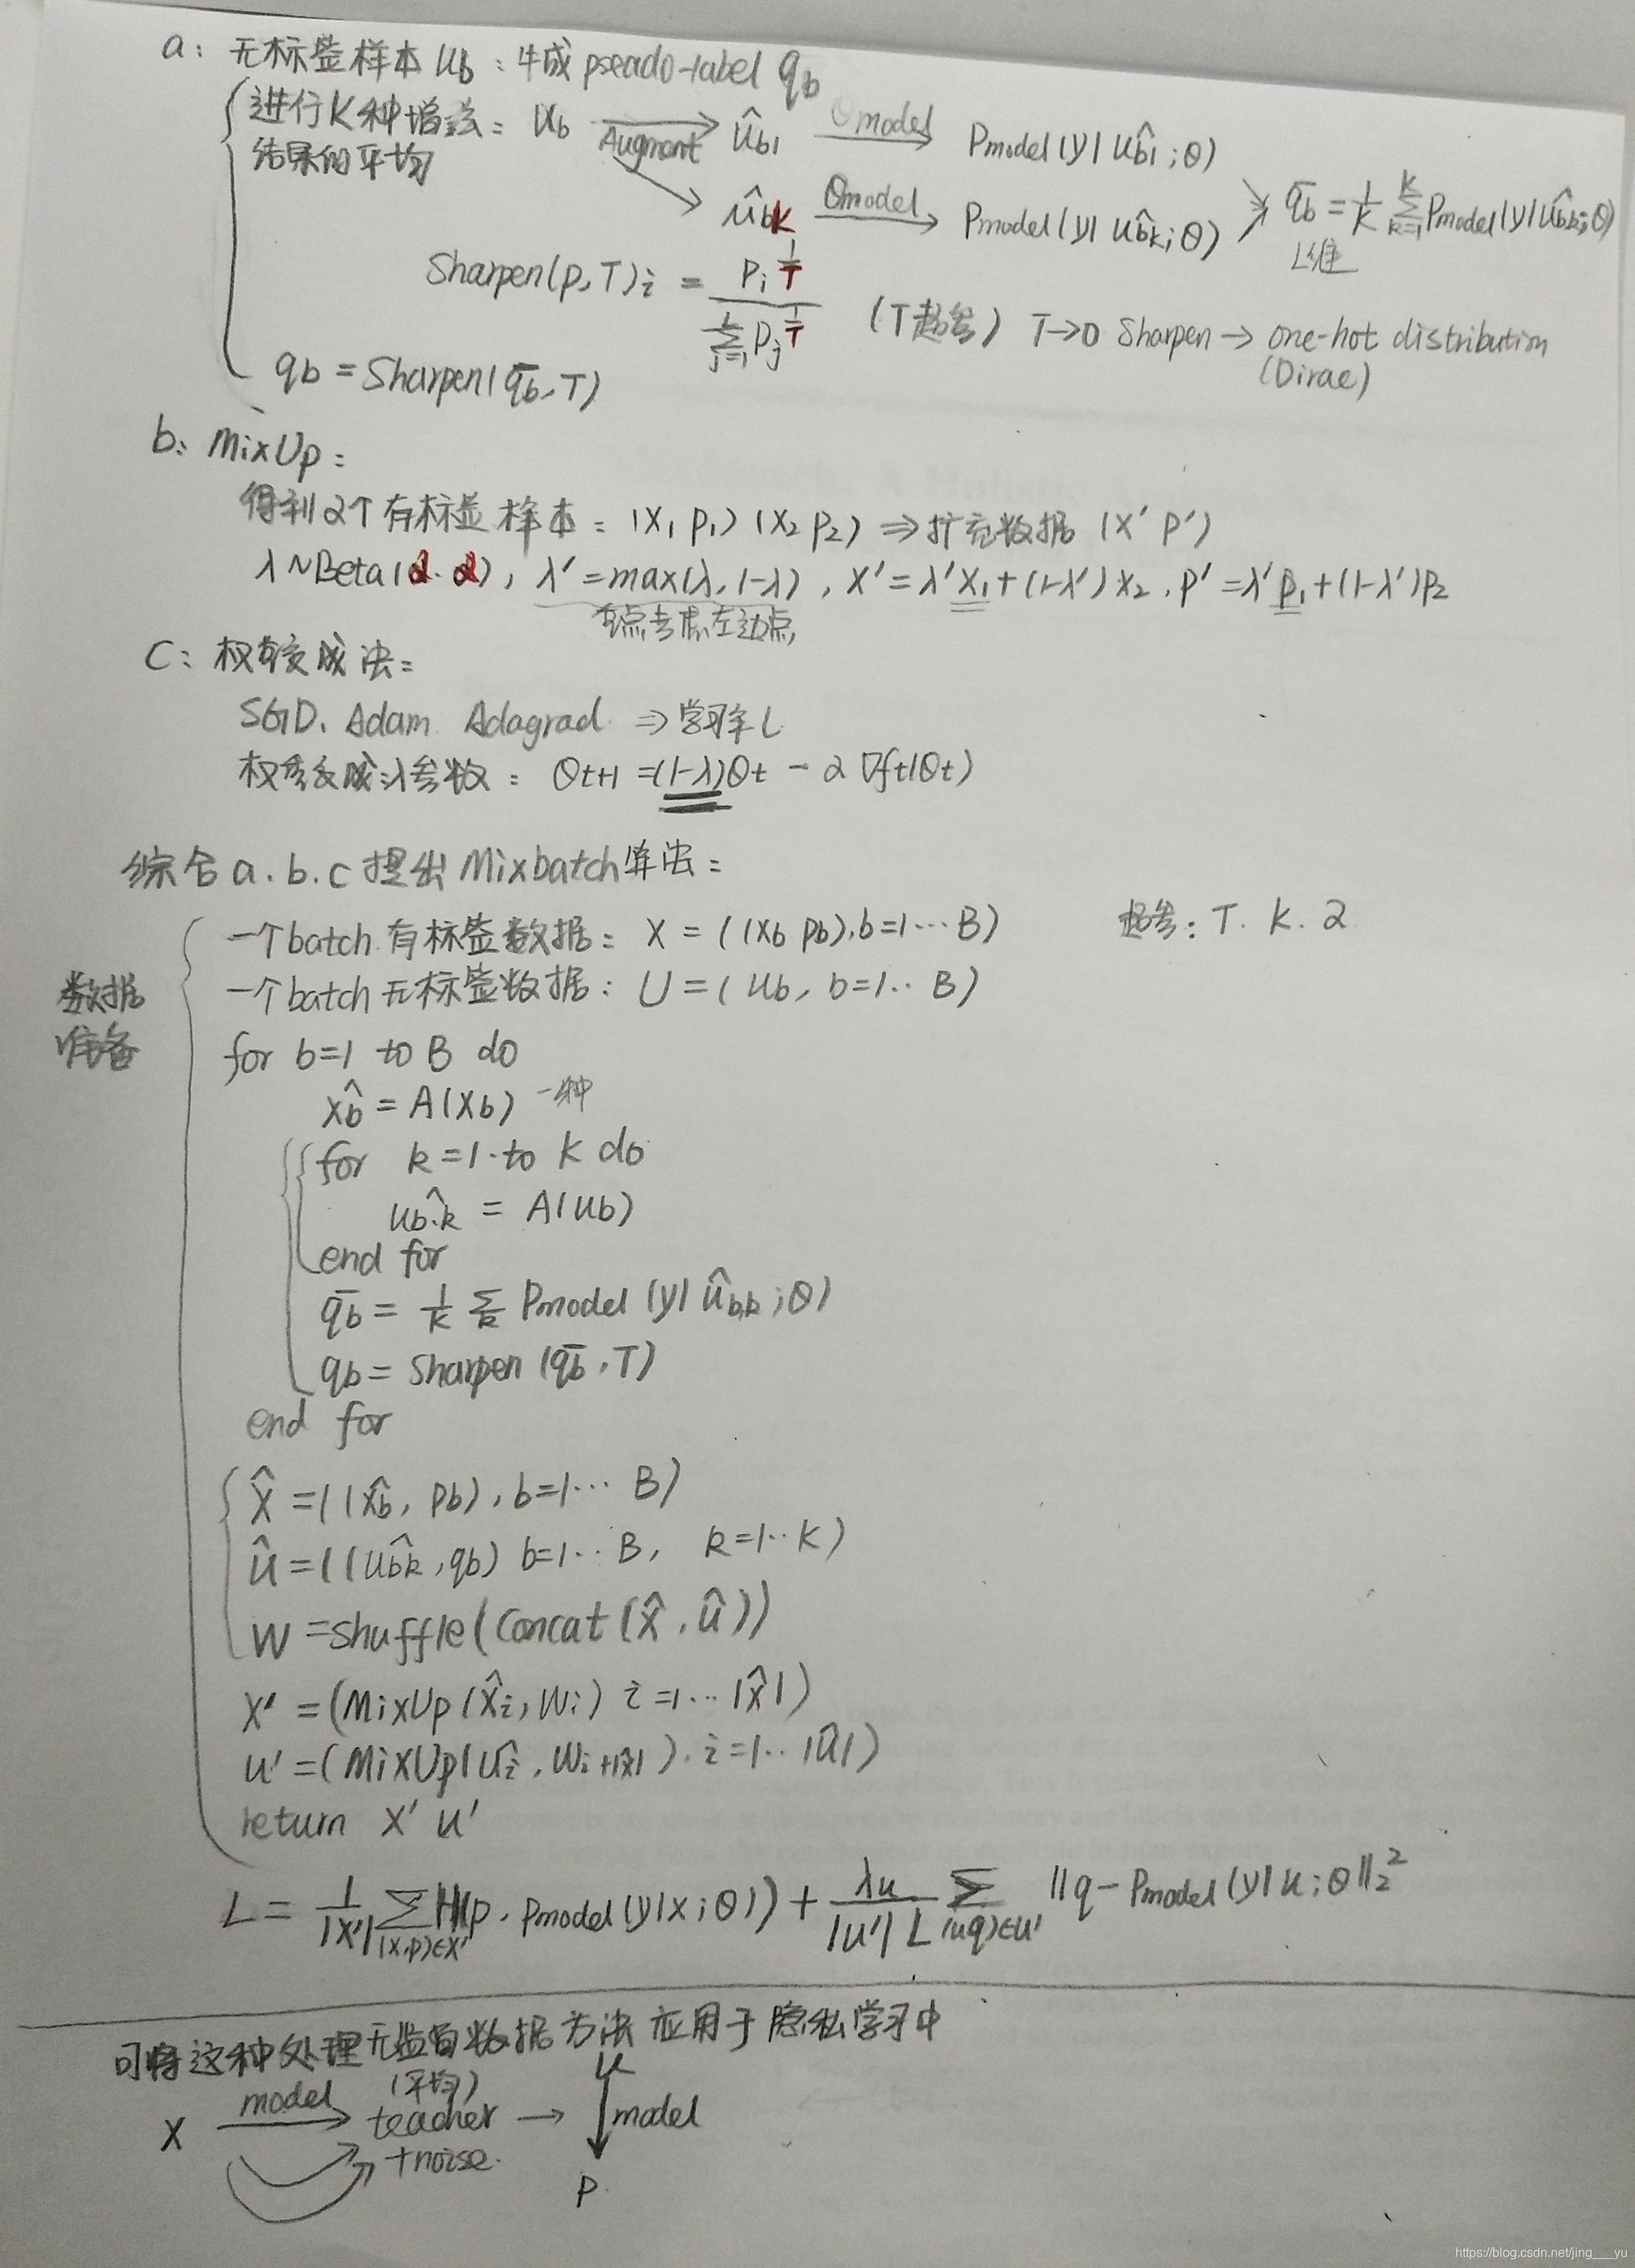 a: 无标签样本 Ub: 生成 pseado-label qb
进行K种增益: Ub Augment → ûb1 θmodel → Pmodel(y|ûb1;θ)
结果的平均
ûbk θmodel → Pmodel(y|ûbk;θ) q̄b = 1/K Σ_{k=1}^{K} Pmodel(y|ûbk;θ)
L维
Sharpen(p,T)i = pi^{1/T} / Σ_{j=1}^{L} pj^{1/T} (T超参) T→0 Sharpen → one-hot distribution
(Dirac)
qb = Sharpen(q̄b, T)
b: MixUp:
得到2个有标签样本: (x1 p1) (x2 p2) ⇒ 扩充数据 (x' p')
λ~Beta(α.α), λ' = max(λ, 1-λ), x' = λ'x1+(1-λ')x2, p' = λ'p1+(1-λ')p2
考虑左边点
C: 权重衰减法:
SGD. Adam Adagrad ⇒ 学习率L
权重衰减:λ参数: θt+1 = (1-λ)θt - α∇ft(θt)
综合a.b.c提出Mixbatch算法:
一个batch有标签数据: X = ((xb pb), b=1…B) 超参: T. K. α
一个batch无标签数据: U = (ub, b=1.. B)
数据
准备
for b=1 to B do
x̂b = A(xb) 一种
for k=1 to K do
ûb.k = A(ub)
end for
q̄b = 1/K Σ_k Pmodel(y|ûb,k;θ)
qb = Sharpen(q̄b, T)
end for
X̂ = ((x̂b, pb), b=1… B)
Û = ((ûbk, qb) b=1… B, k=1..K)
W = shuffle(Concat(X̂, Û))
X' = (MixUp(X̂i, Wi) i=1… |X̂|)
U' = (MixUp(Ûi, Wi+|X̂|). i=1.. |Û|)
return X' U'
L = 1/|X'| Σ_{(x,p)∈X'} H(p, Pmodel(y|x;θ)) + λu/(|U'| L) Σ_{(u q)∈U'} ||q - Pmodel(y|u;θ||₂²
可将这种处理无监督数据方法应用于隐私学习中
(平均) U
X model → teacher → ↓model
+noise.
P
https://blog.csdn.net/jing___yu